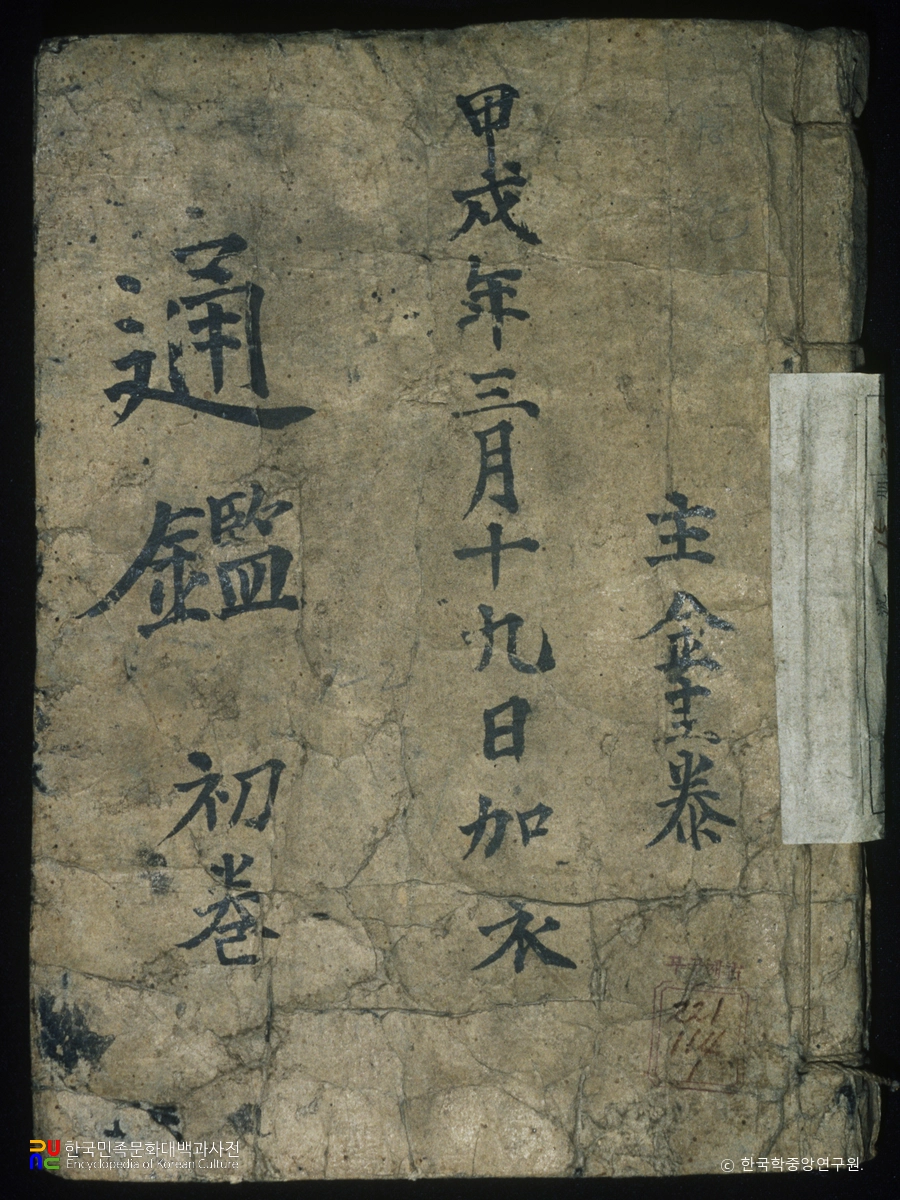 主 金圭泰
甲戌年三月十九日加衣
通鑑 初卷
221
114
1
한국민족문화대백과사전
Encyclopedia of Korean Culture
© 한국학중앙연구원.